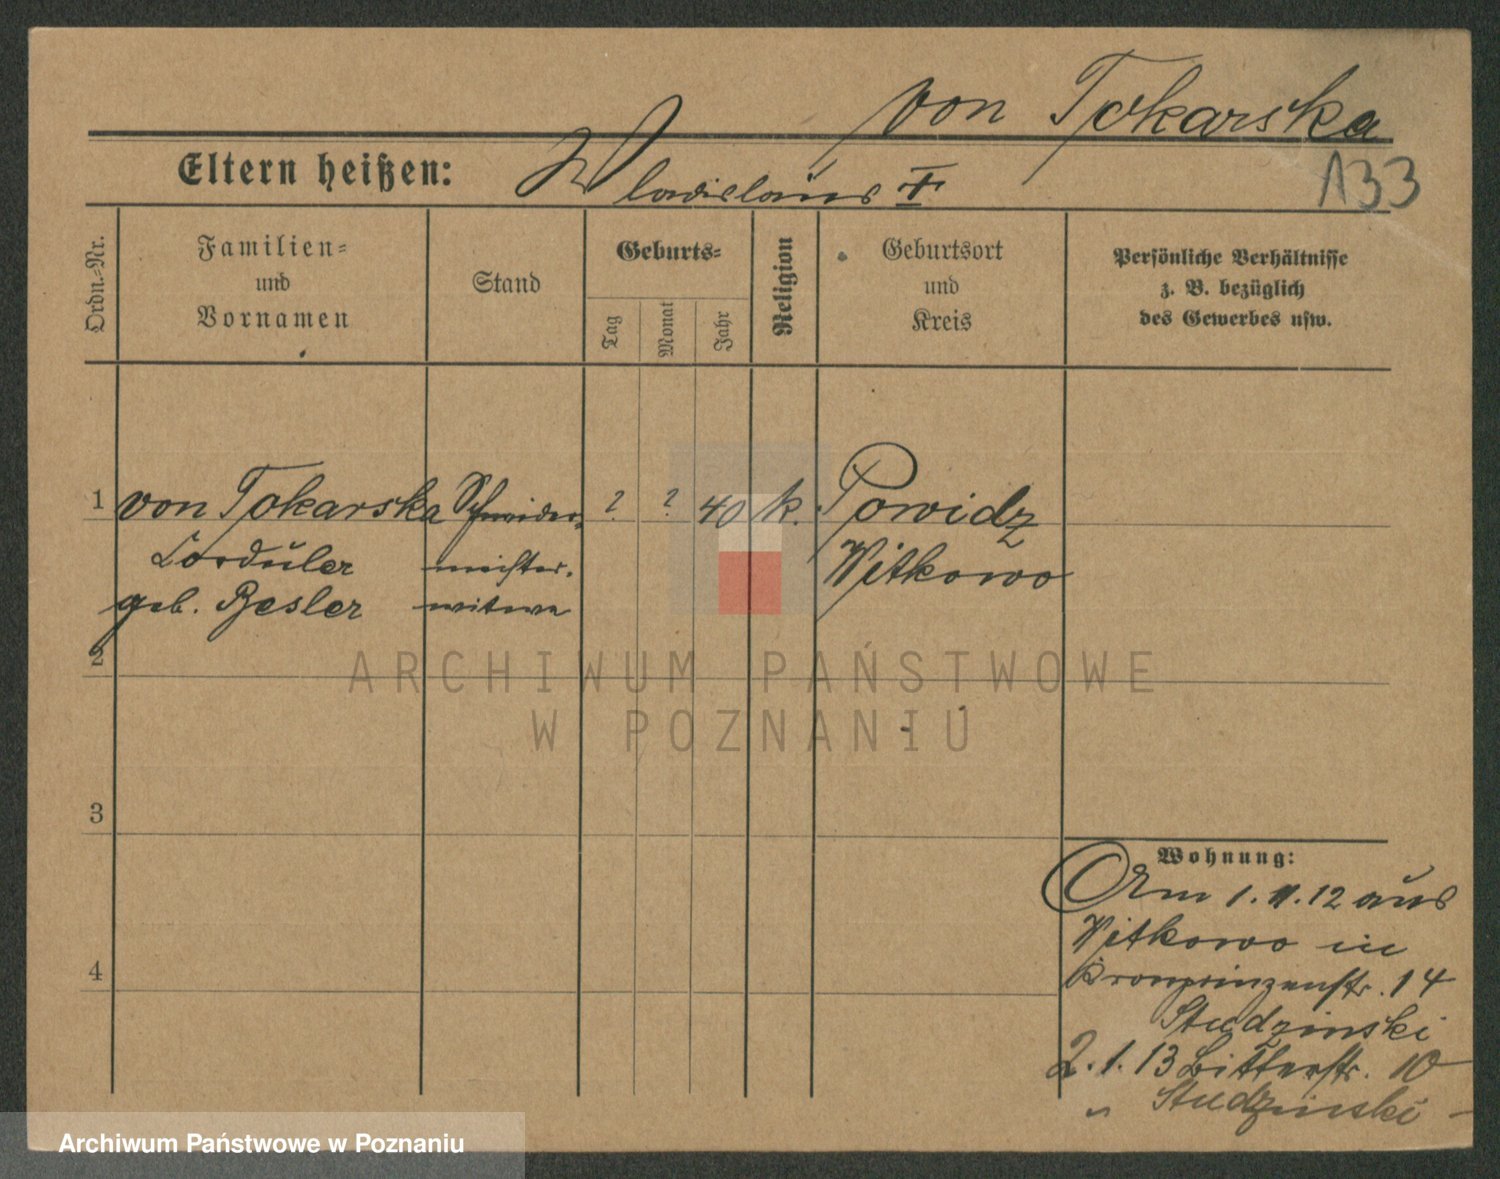 von Tokarska
Eltern heißen: Wladislaus †
133
Ordn.-Nr.
Familien-
und
Vornamen
Stand
Geburts-
Tag
Monat
Jahr
Religion
Geburtsort
und
Kreis
Persönliche Verhältnisse
z. B. bezüglich
des Gewerbes usw.
1 von Tokarska Schneider- ? ? 40 k. Powidz
meister- Witkowo
geb. Besler witwe
2
3
4
ARCHIWUM PAŃSTWOWE
W POZNANIU
Wohnung:
1. 11. 12 aus
Witkowo in
Kronprinzenstr. 14
Studzinski
2. 1. 13 Bitterstr. 10
" Studzinski
Archiwum Państwowe w Poznaniu